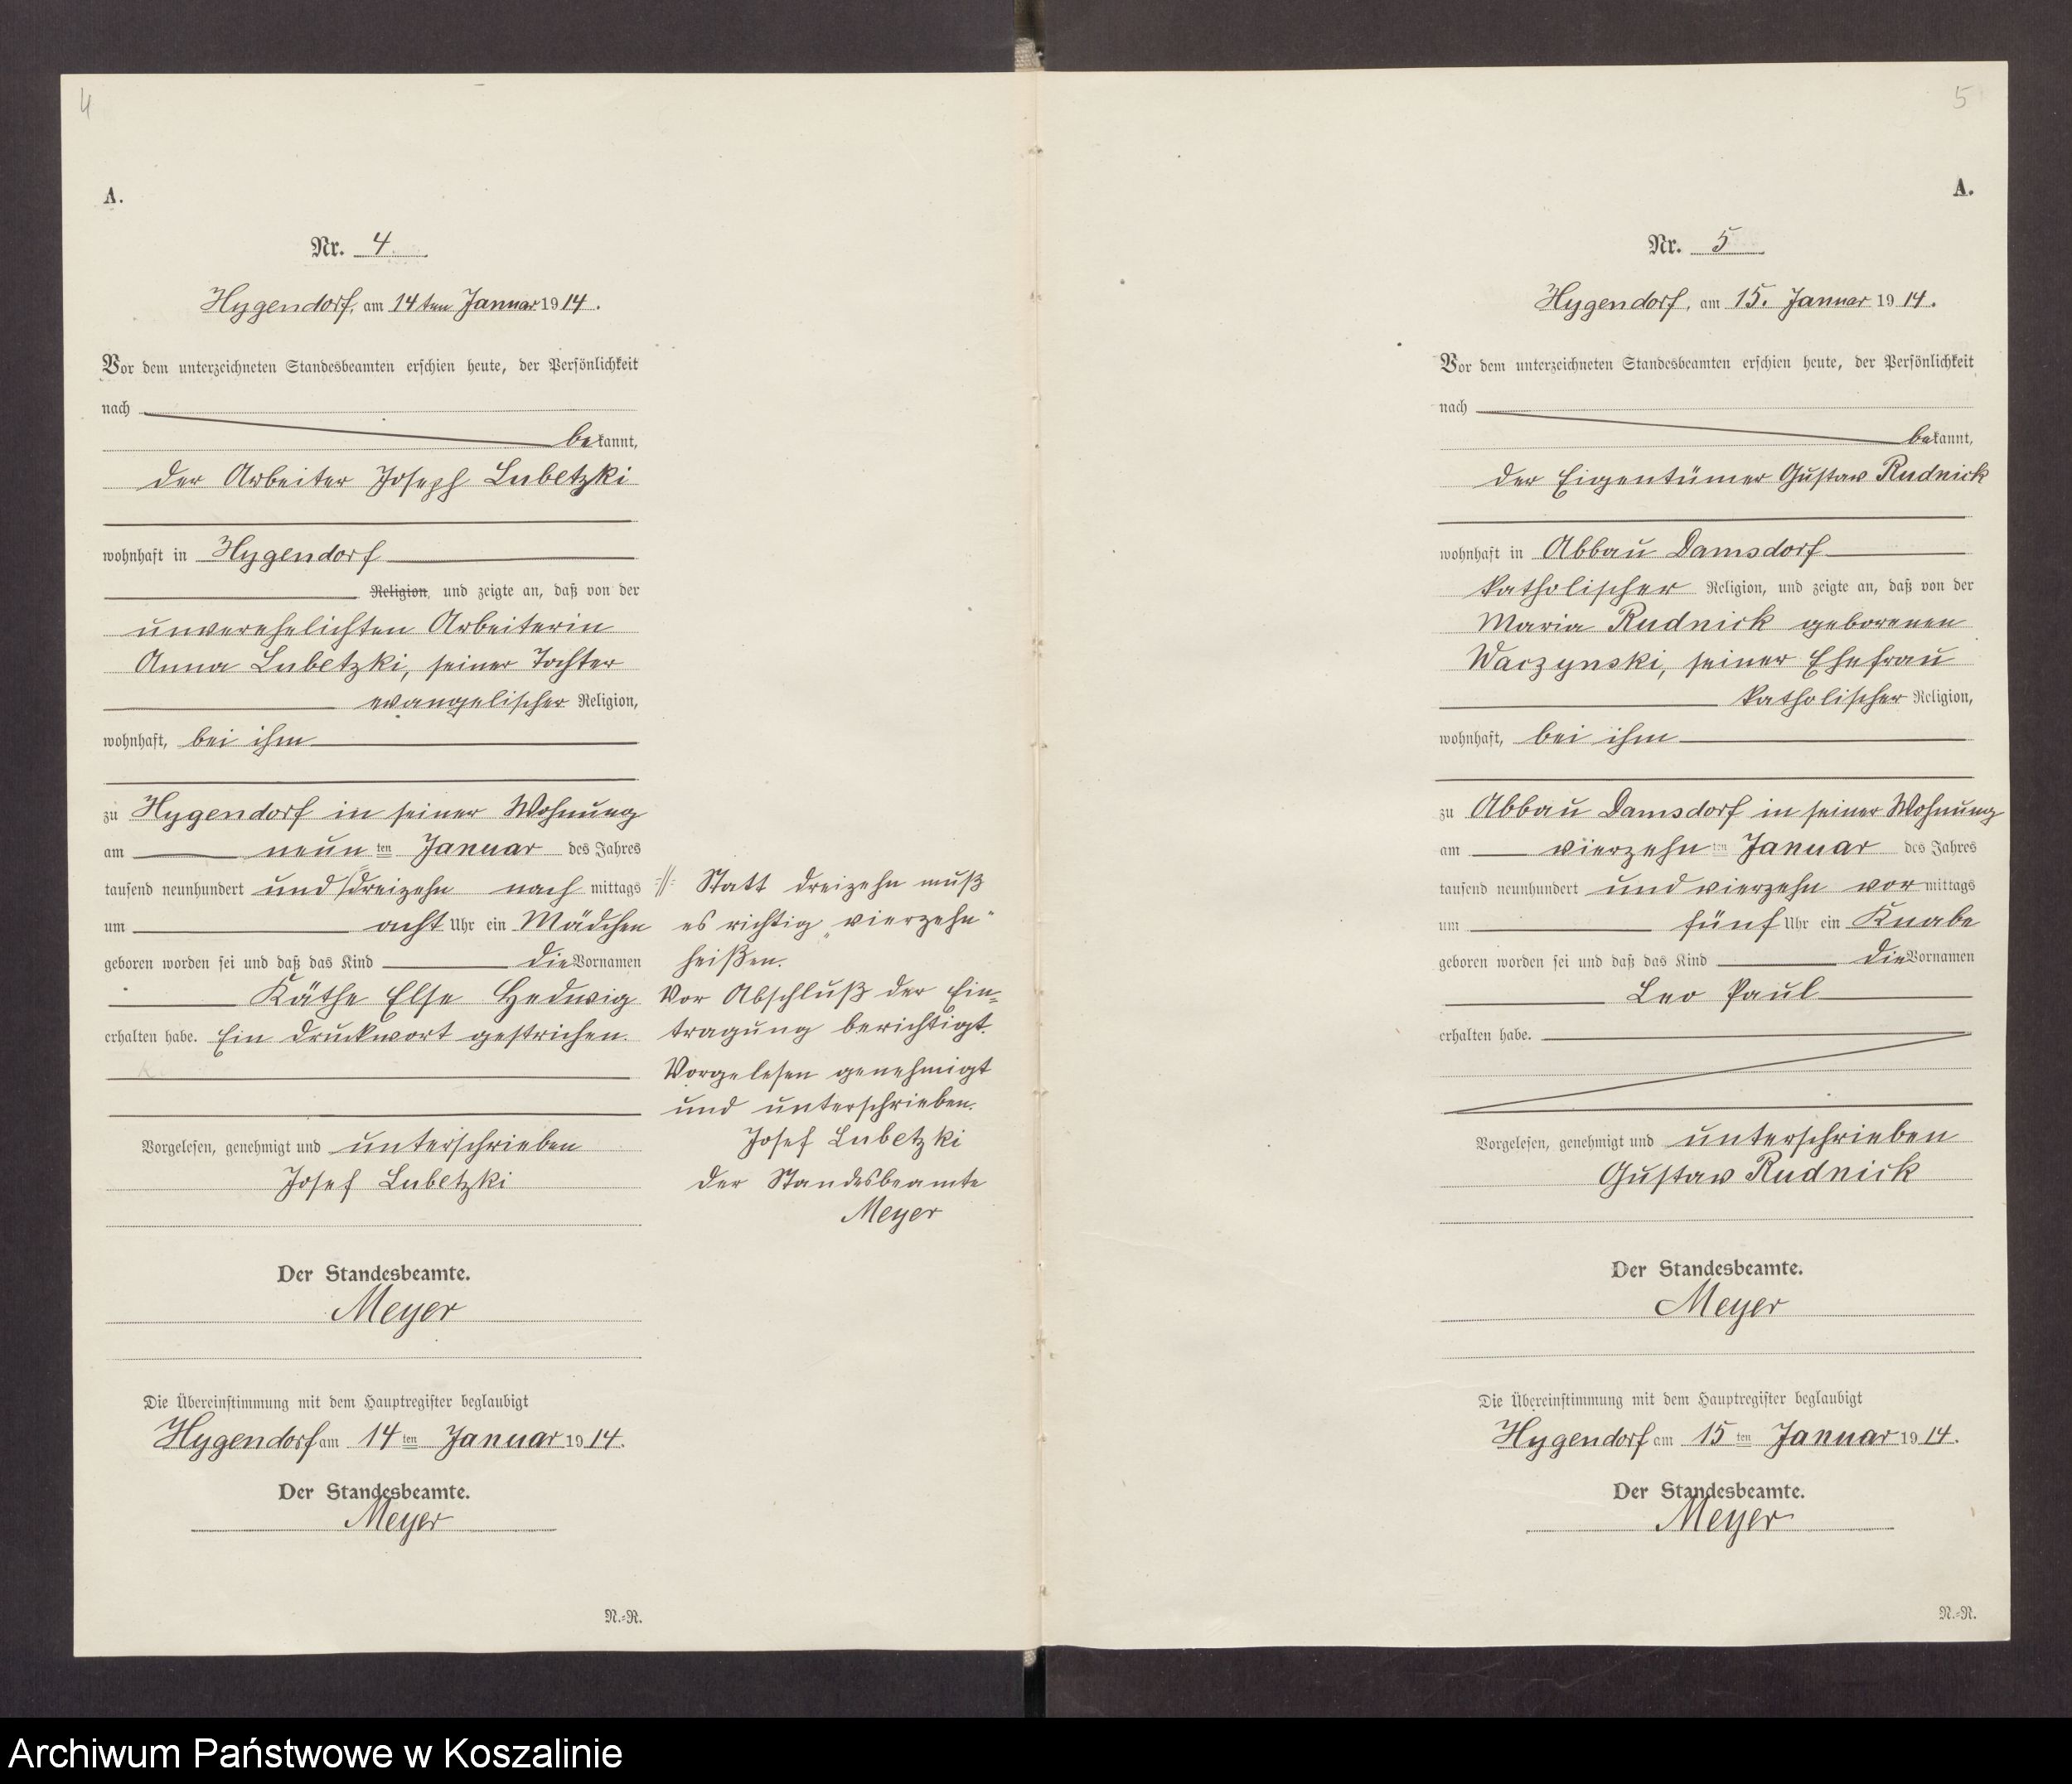 4
A.
Nr. 4.
Hygendorf, am 14ten Januar 1914.
Vor dem unterzeichneten Standesbeamten erschien heute, der Persönlichkeit
nach
bekannt,
der Arbeiter Joseph Lubetzki
wohnhaft in Hygendorf
Religion, und zeigte an, daß von der
unverehelichten Arbeiterin
Anna Lubetzki, seiner Tochter
evangelischer Religion,
wohnhaft, bei ihm
zu Hygendorf in seiner Wohnung
am neunten Januar des Jahres
tausend neunhundert und dreizehn nachmittags
um acht Uhr ein Mädchen
geboren worden sei und daß das Kind die Vornamen
Käthe Else Hedwig
erhalten habe. Ein Druckwort gestrichen.
Vorgelesen, genehmigt und unterschrieben
Josef Lubetzki
Der Standesbeamte.
Meyer
Die Übereinstimmung mit dem Hauptregister beglaubigt
Hygendorf am 14ten Januar 1914.
Der Standesbeamte.
Meyer
N.=R.
Statt dreizehn muß
es richtig „vierzehn"
heißen.
Vor Abschluß der Ein=
tragung berichtigt.
Vorgelesen genehmigt
und unterschrieben.
Josef Lubetzki
Der Standesbeamte
Meyer
5
A.
Nr. 5
Hygendorf, am 15. Januar 1914.
Vor dem unterzeichneten Standesbeamten erschien heute, der Persönlichkeit
nach
bekannt,
der Eigentümer Gustav Rudnick
wohnhaft in Abbau Damsdorf
katholischer Religion, und zeigte an, daß von der
Maria Rudnick geborenen
Warzynski, seiner Ehefrau
katholischer Religion,
wohnhaft, bei ihm
zu Abbau Damsdorf in seiner Wohnung
am vierzehnten Januar des Jahres
tausend neunhundert und vierzehn vormittags
um fünf Uhr ein Knabe
geboren worden sei und daß das Kind die Vornamen
Leo Paul
erhalten habe.
Vorgelesen, genehmigt und unterschrieben
Gustav Rudnick
Der Standesbeamte.
Meyer
Die Übereinstimmung mit dem Hauptregister beglaubigt
Hygendorf am 15ten Januar 1914.
Der Standesbeamte.
Meyer
N.=R.
Archiwum Państwowe w Koszalinie